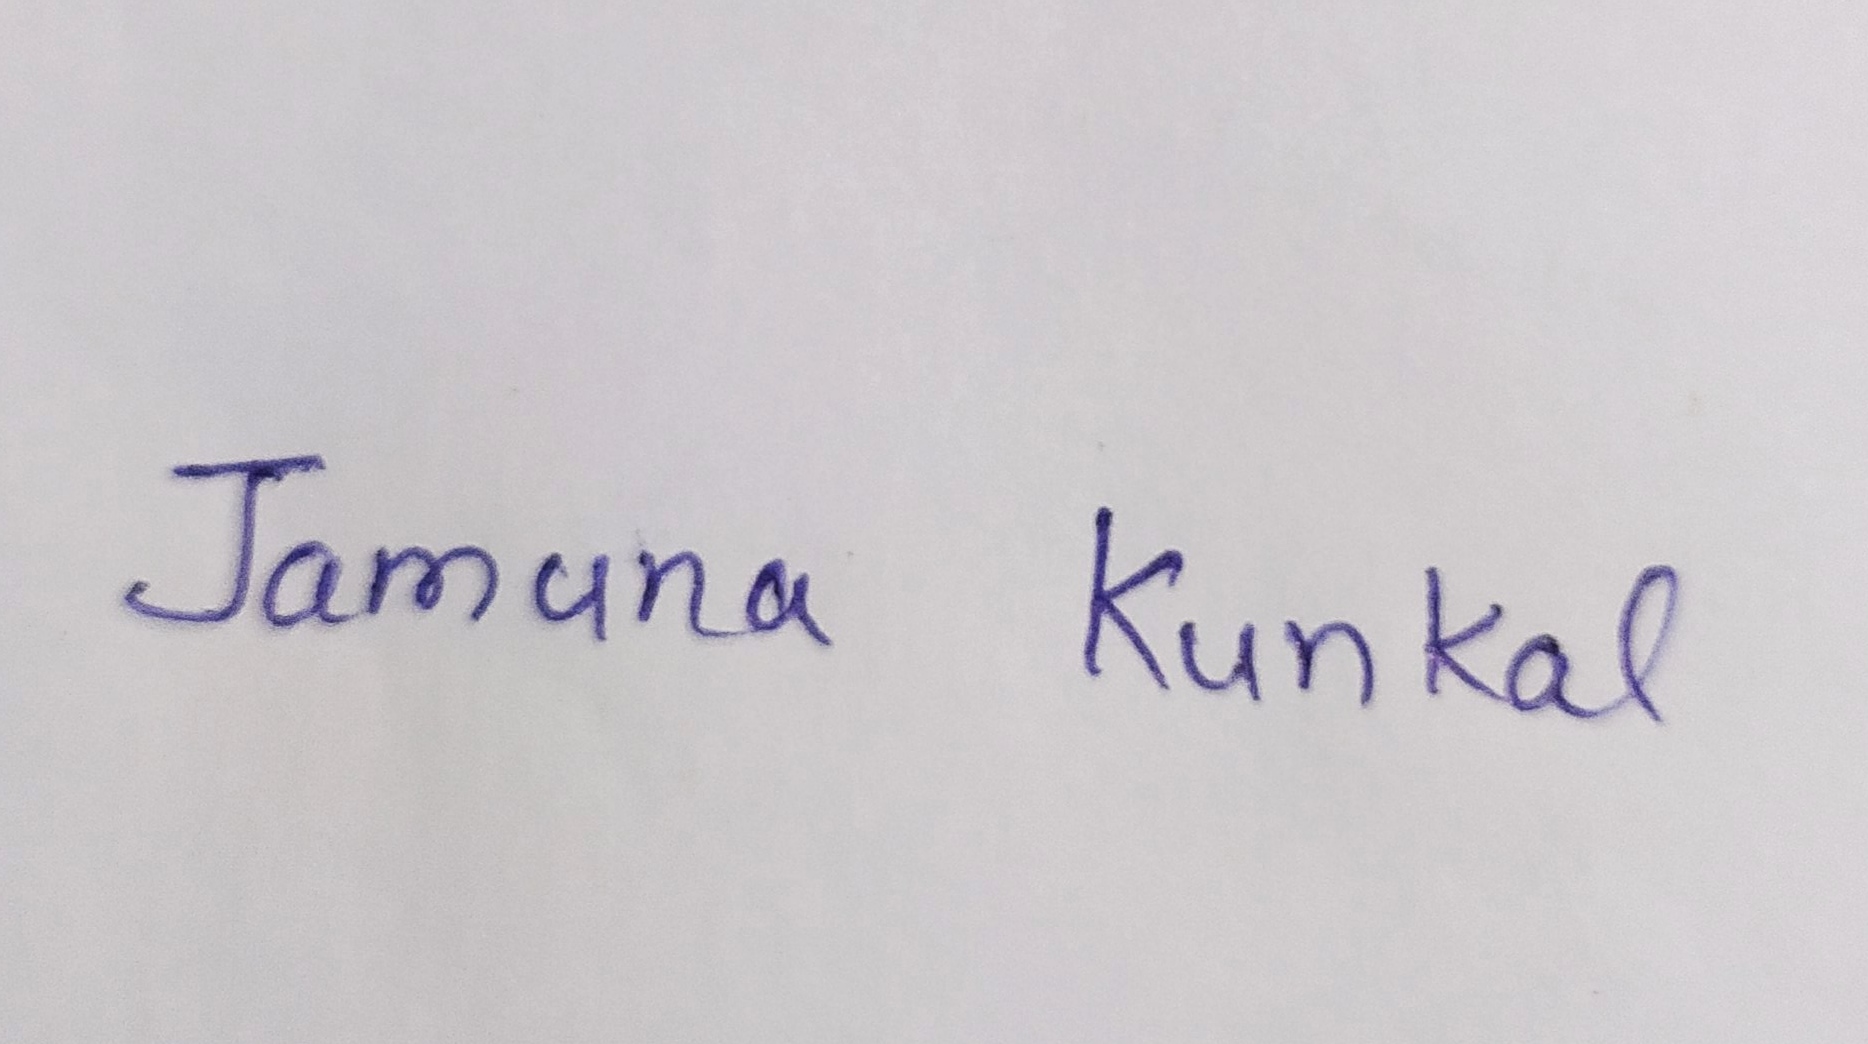 Jamuna Kunkal